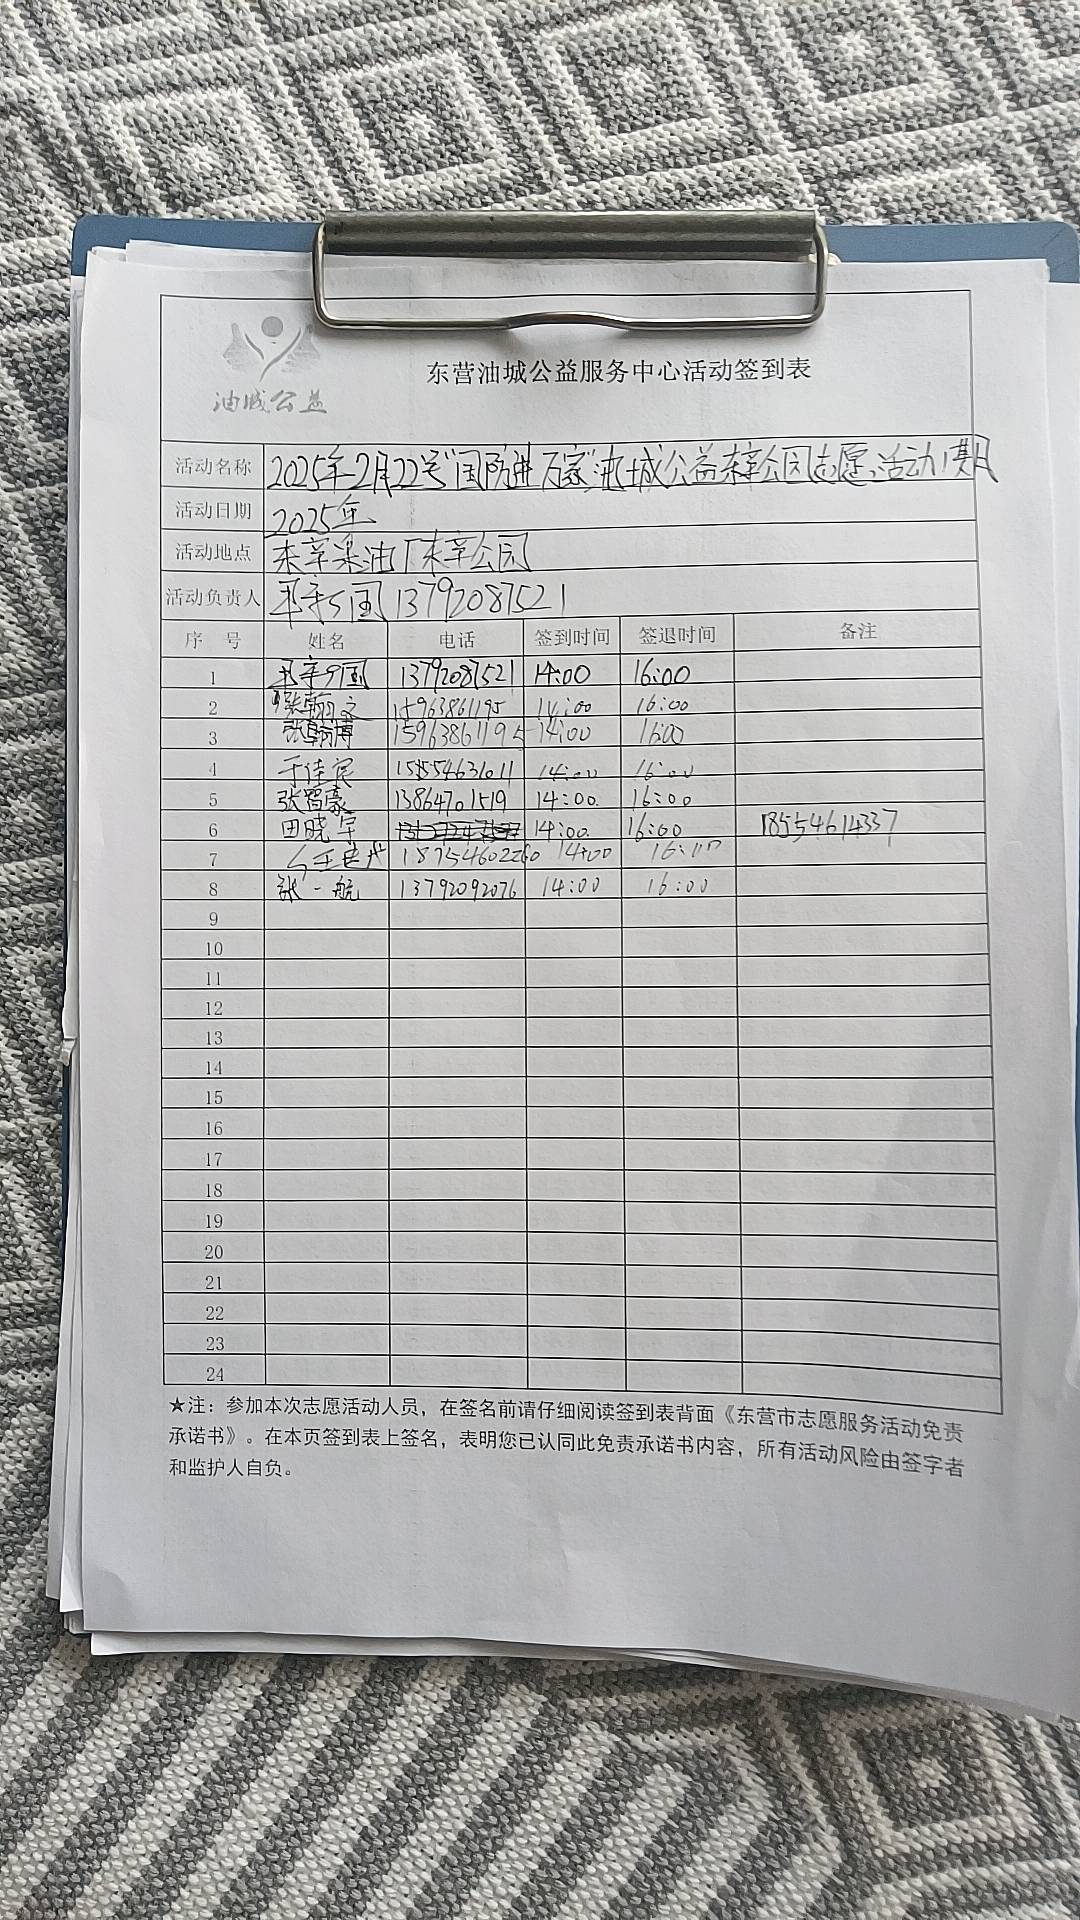 油城公益
东营油城公益服务中心活动签到表
活动名称 2025年2月22号"国防进万家"油城公益东辛公园志愿活动1期
活动日期 2025年
活动地点 东辛采油厂东辛公园
活动负责人 国 13792087521
序 号 姓名 电话 签到时间 签退时间 备注
1 国 13792087521 14:00 16:00
2 张翰文 15963861195 14:00 16:00
3 张翰博 15963861195 14:00 16:00
4 于佳宾 15554631011 14:00 16:00
5 张智豪 13864701519 14:00. 16:00
6 田晓军 14:00. 16:00 18554614337
7 18754602260 14:00 16:00
8 张一航 13792092076 14:00 16:00
9
10
11
12
13
14
15
16
17
18
19
20
21
22
23
24
★注：参加本次志愿活动人员，在签名前请仔细阅读签到表背面《东营市志愿服务活动免责
承诺书》。在本页签到表上签名，表明您已认同此免责承诺书内容，所有活动风险由签字者
和监护人自负。